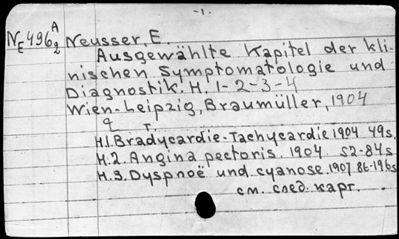 -1.
NE496 A/2 Neusser, E.
Ausgewählte Kapitel der kli-
nischen Symptomatologie und
Diagnostik. H. 1-2-3-4
Wien-Leipzig, Braumüller, 1904
т.
H.1. Bradycardie-Tachycardie 1904 49s.
H.2. Angina pectoris. 1904 52-84s
H.3. Dyspnoë und cyanose. 1907. 86-196s
см. след. карт.